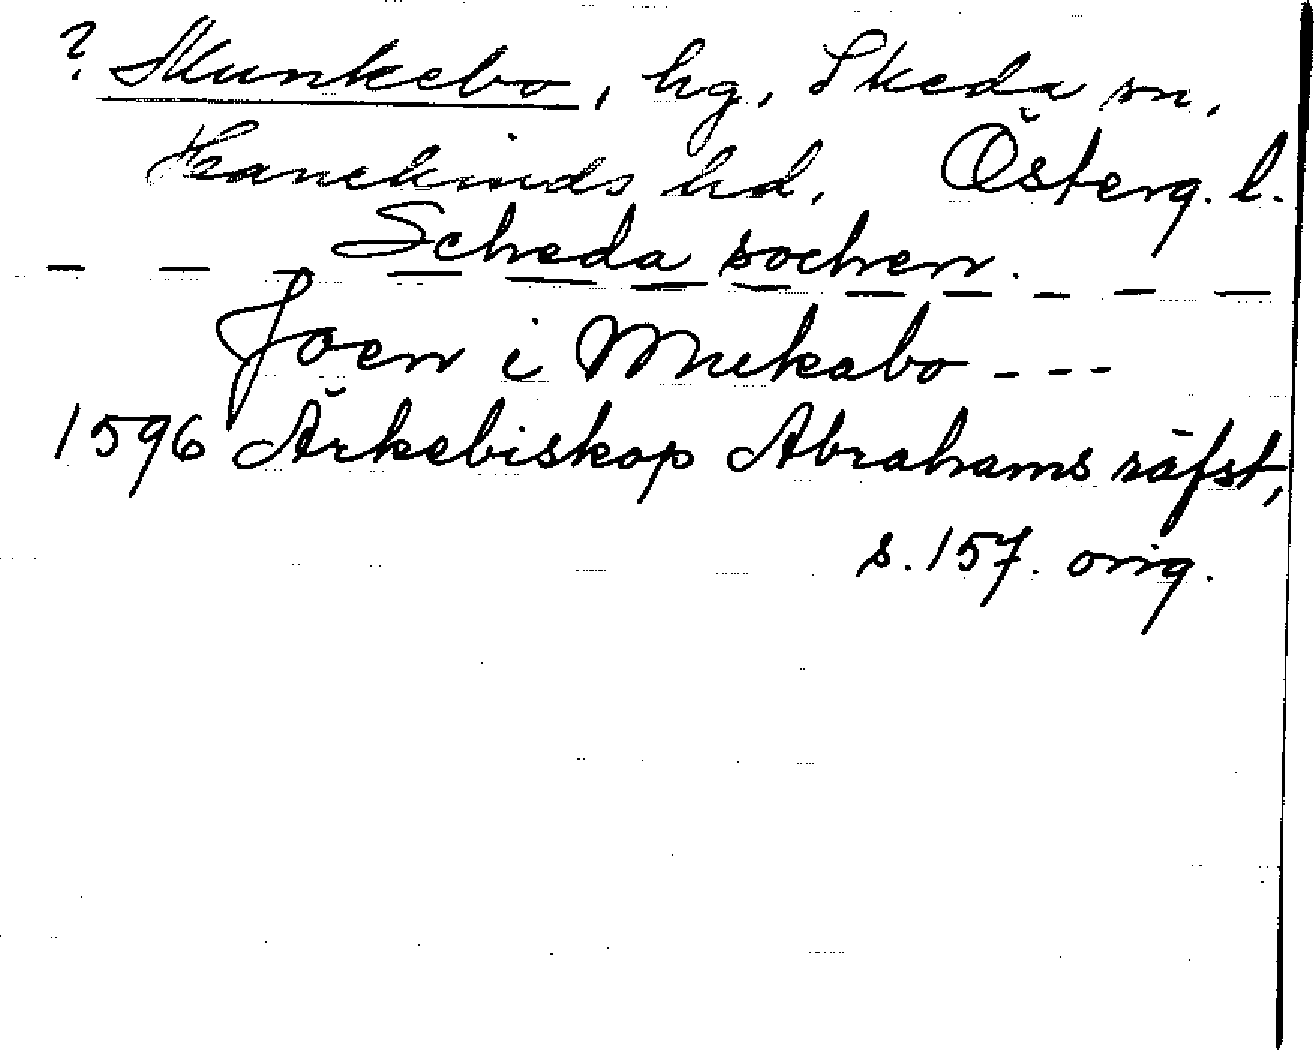 ? Skunkebo, hg, Skeda sn,
Hanekinds hd, Österg. l.
Scheda sochen.
Joen i Mukabo ---
1596 Ärkebiskop Abrahams räfst,
s. 157. orig.